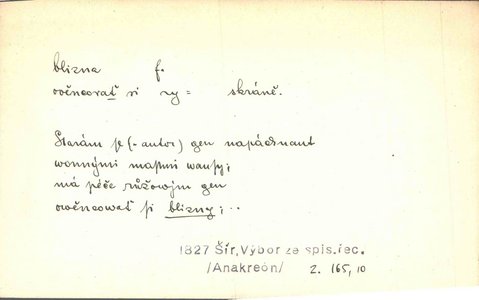 blizna f.
ověncovať si zy = skráně.
Starám se (= autor) gen napáchnaut
wonnými mastmi wausy;
má péče růžowým gen
owěncowať si blizny; ..
1827 Šír, Výbor ze spis. řec.
/Anakreón/ 2. 165, 10